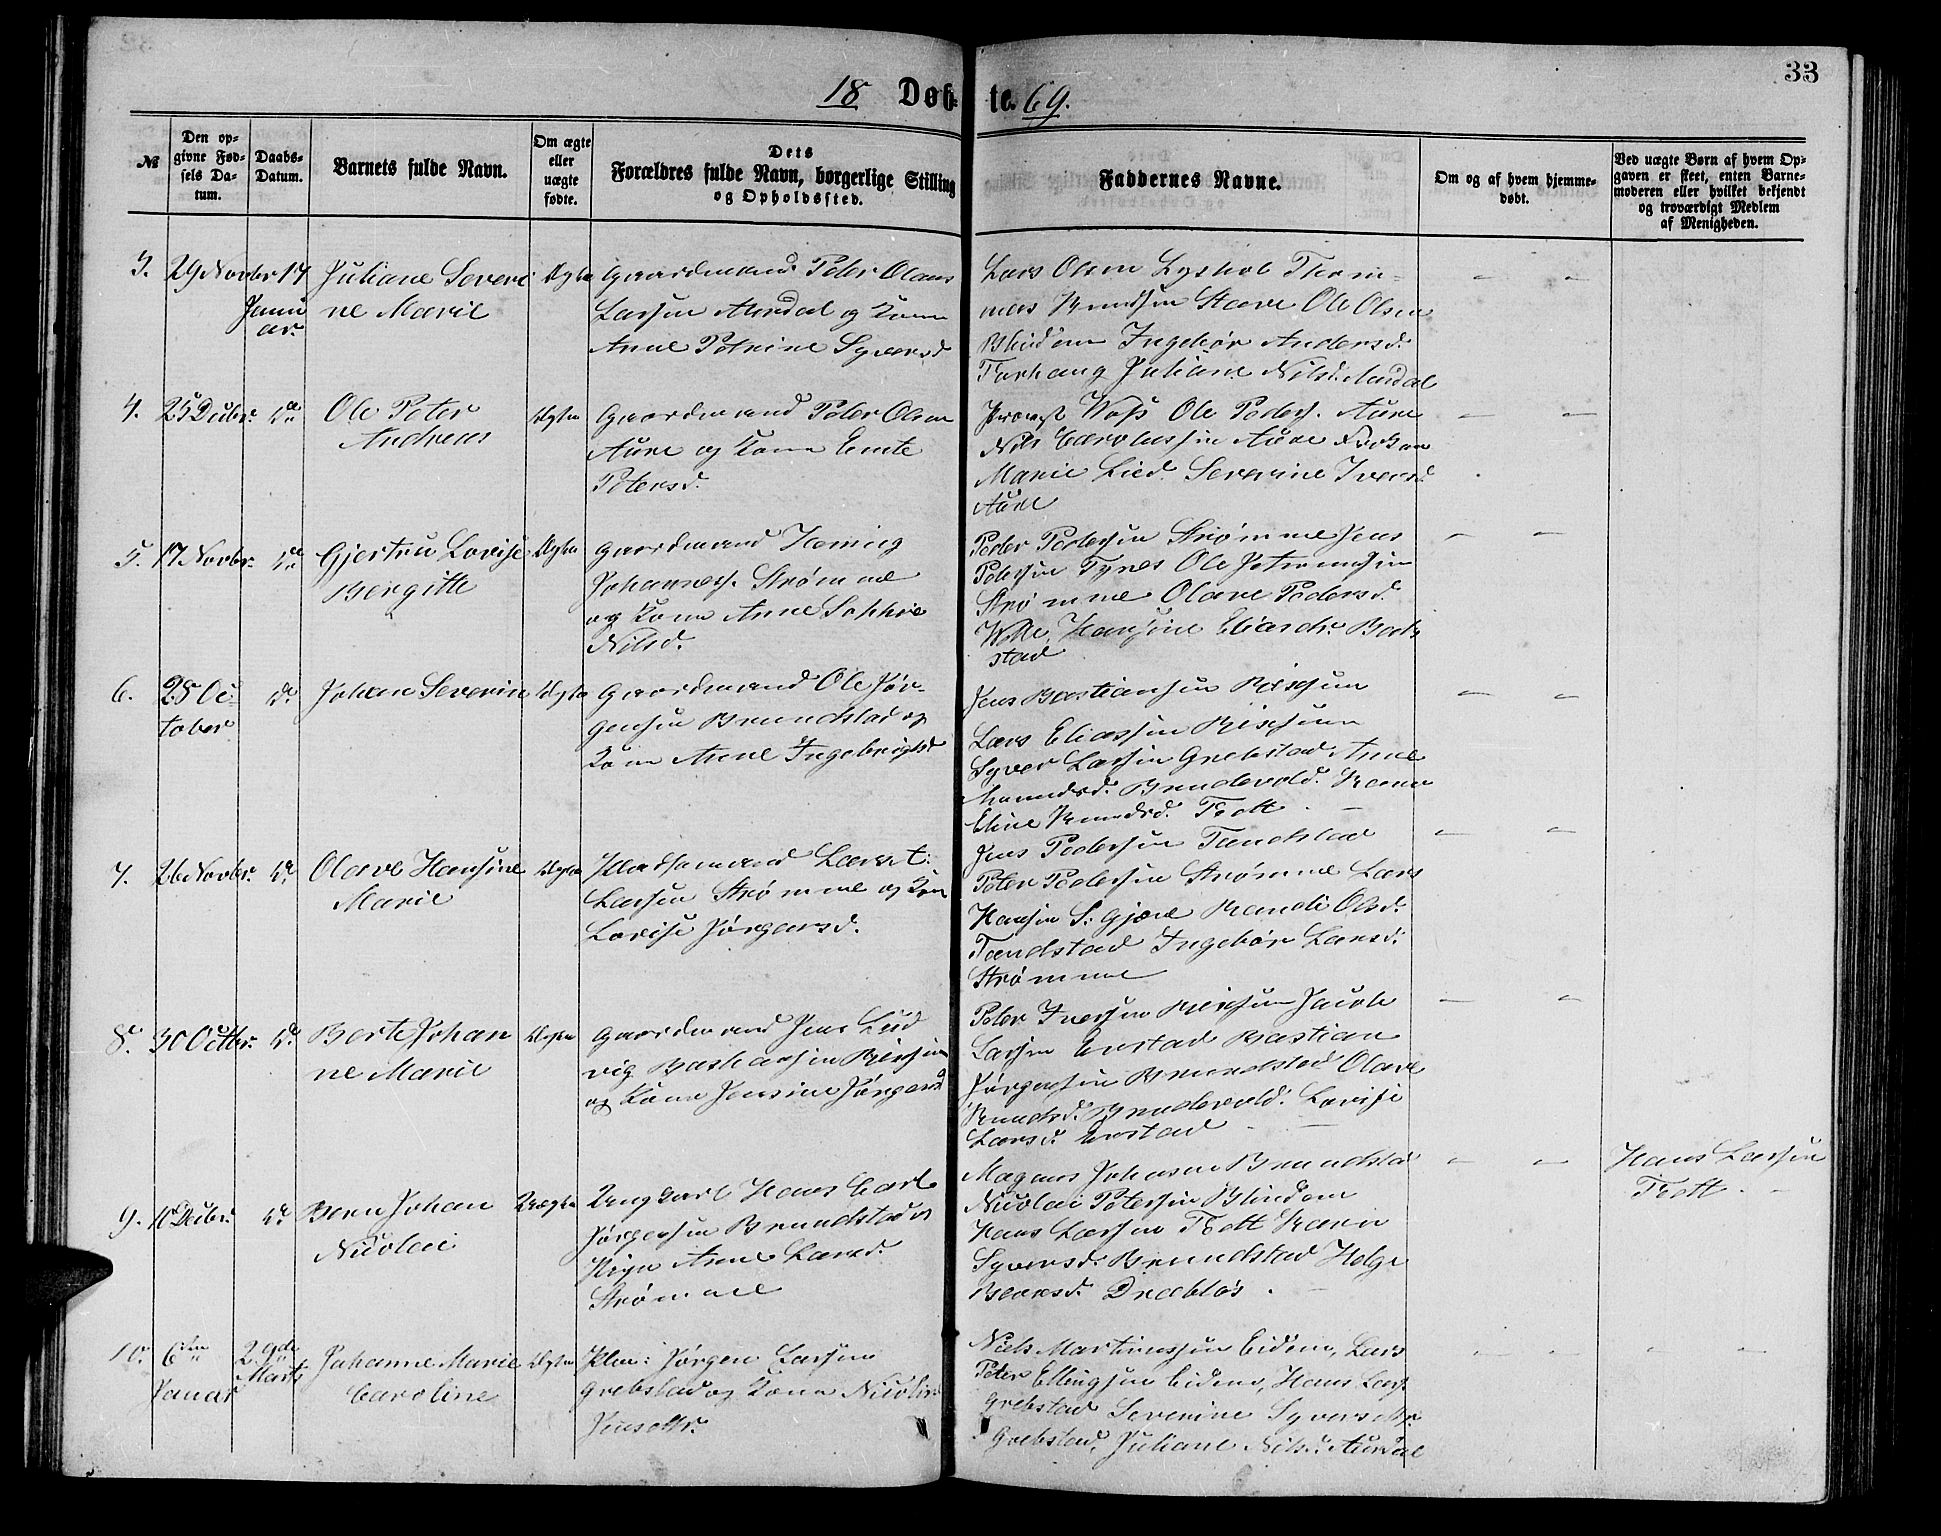 33
18 Døb-te. 69.
№
Den op-
givne Fød-
sels Da-
tum.
Daabs-
Datum.
Barnets fulde Navn.
Om ægte
eller
uægte
fødte.
Dets
Forældres fulde Navn, borgerlige Stilling
og Opholdssted.
Faddernes Navne.
Om og af hvem hjemme-
døbt.
Ved uægte Børn af hvem Op-
gaven er skeet, enten Barne-
moderen eller hvilket bekjendt
og troværdigt Medlem
af Menigheden.
3. 29 Novbr 17
Janu
ar.
Juliane Severi
ne Marie
Ægte
Gaardmand Peter Olaus
Larsen Aursdal og Kone
Anne Petrine Syversd
Lars Olsen Lyshol Thom-
mas Knudsen Stave Ole Olsen
Blindem Ingebør Andersd.
Farhaug Juliane Nilsd. Aursdal
4. 25 Decbr. do
Ole Peter
Andreas
Ægte
Gaardmand Peter Olsen
Aure og Kone
Petersd.
Provst Ole Peders. Aure
Nils Carolussen Aure Frøken
Marie Lied. Severine Ivers
Aure
5. 17 Novbr. do
Gjertru Lovise
Bergitte
Ægte
Gaardmand Heming
Johannes. Strømme
og Kone Anne Sophie
Nilsd.
Peder Pedersen Strømme Jens
Petersen Tynes Ole
Strømme Olave Pedersd.
Hansine
stad
6. 28 Oc-
tober
do
Johan Severin
Ægte
Gaardmand Ole Jør-
gensen Brundstad og
Kone Anne Ingebrigtsd
Jens Bastiansen
Lars Eliassen
Syver Larsen Grebstad Anne
Brudevold.
Eline Knudsd. Trett
7. 26 Novbr. do
Olave Hansine
Marie
Ægte
Pladsemand
Larsen Strømme og Kone
Lovise Jørgensd.
Jens Pedersen Tandstad
Peter Pedersen Strømme Lars
Hansen S: Gjære Randi Olsd.
Tandstad Ingebør Larsd.
Strømme
8. 30 Octbr. do
Berte Johan
ne Marie
Ægte
Gaardmand Jens Lud
vig Bastiansen
og Kone Jensine Jørgensd
Peter Iversen Jacob
Larsen Bastian
Jørgensen Brundstad Olave
Knudsd. Brudevold. Lovise
Larsd.
9. Decbr. do
Bern Johan
Nicolai
Uægte
Ungkarl Hans Carl
Jørgensen Brundstad og
Pige Anne Larsd.
Strømme
Magnus Johnsen Brundstad
Nicolai Petersen Blindem
Hans Larsen Trett Karen
Syversd. Brundstad Helge
Dræbløs
Hans Larsen
Trett.
10. 6te
Januar
29de
Marts
Johanne Marie
Caroline
Ægte
Plm: Jørgen Larsen
Grebstad og Kone Nicoline
Jensdtr.
Niels Martinussen Eidem, Lars
Peter Ellingsen Eidem, Hans Lars.
Grebstad Severine Syversdtr.
Grebstad, Juliane Nilsd. Aursdal